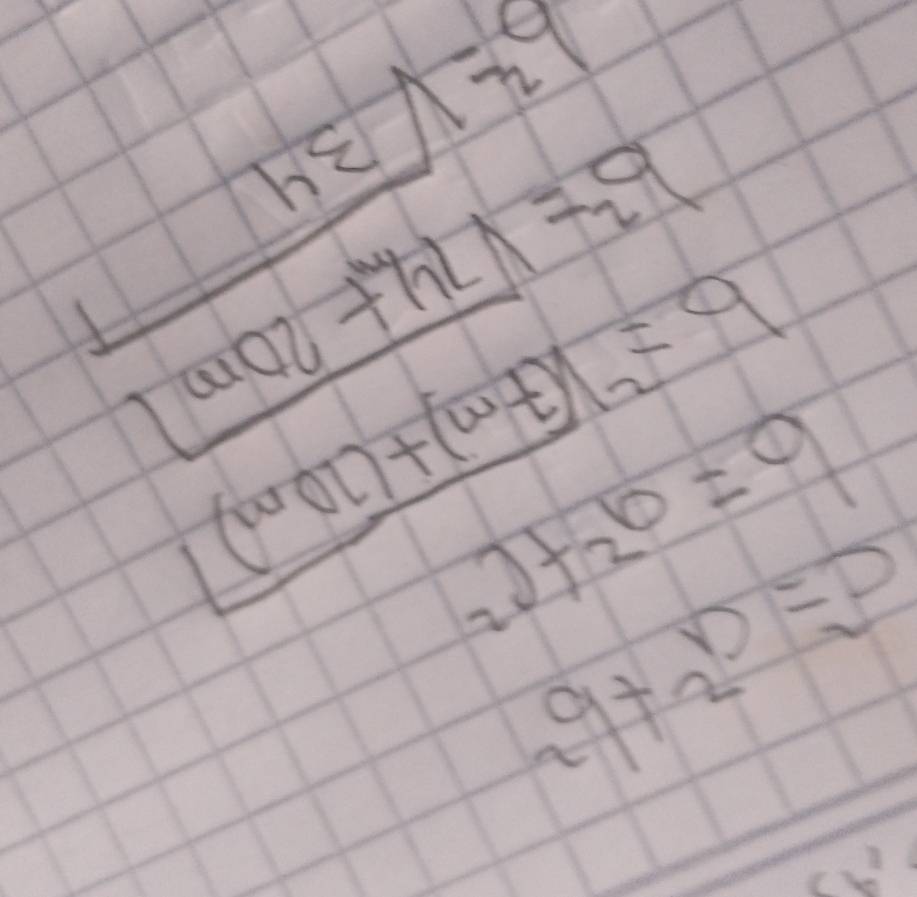 c²=a²+b²
b=a²+c²
b=²√(7m)+(10m)
b²=√14m+20m
b²=√34